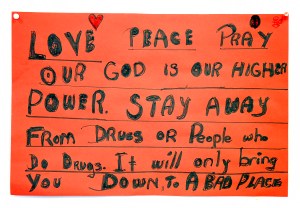 LOVE PEACE PRAY
OUR GOD IS OUR HIGHER
POWER. STAY AWAY
FROM DRUGS OR PEOPLE who
Do DRUGS. It will only bring
You DOWN, TO A BAD PLACE